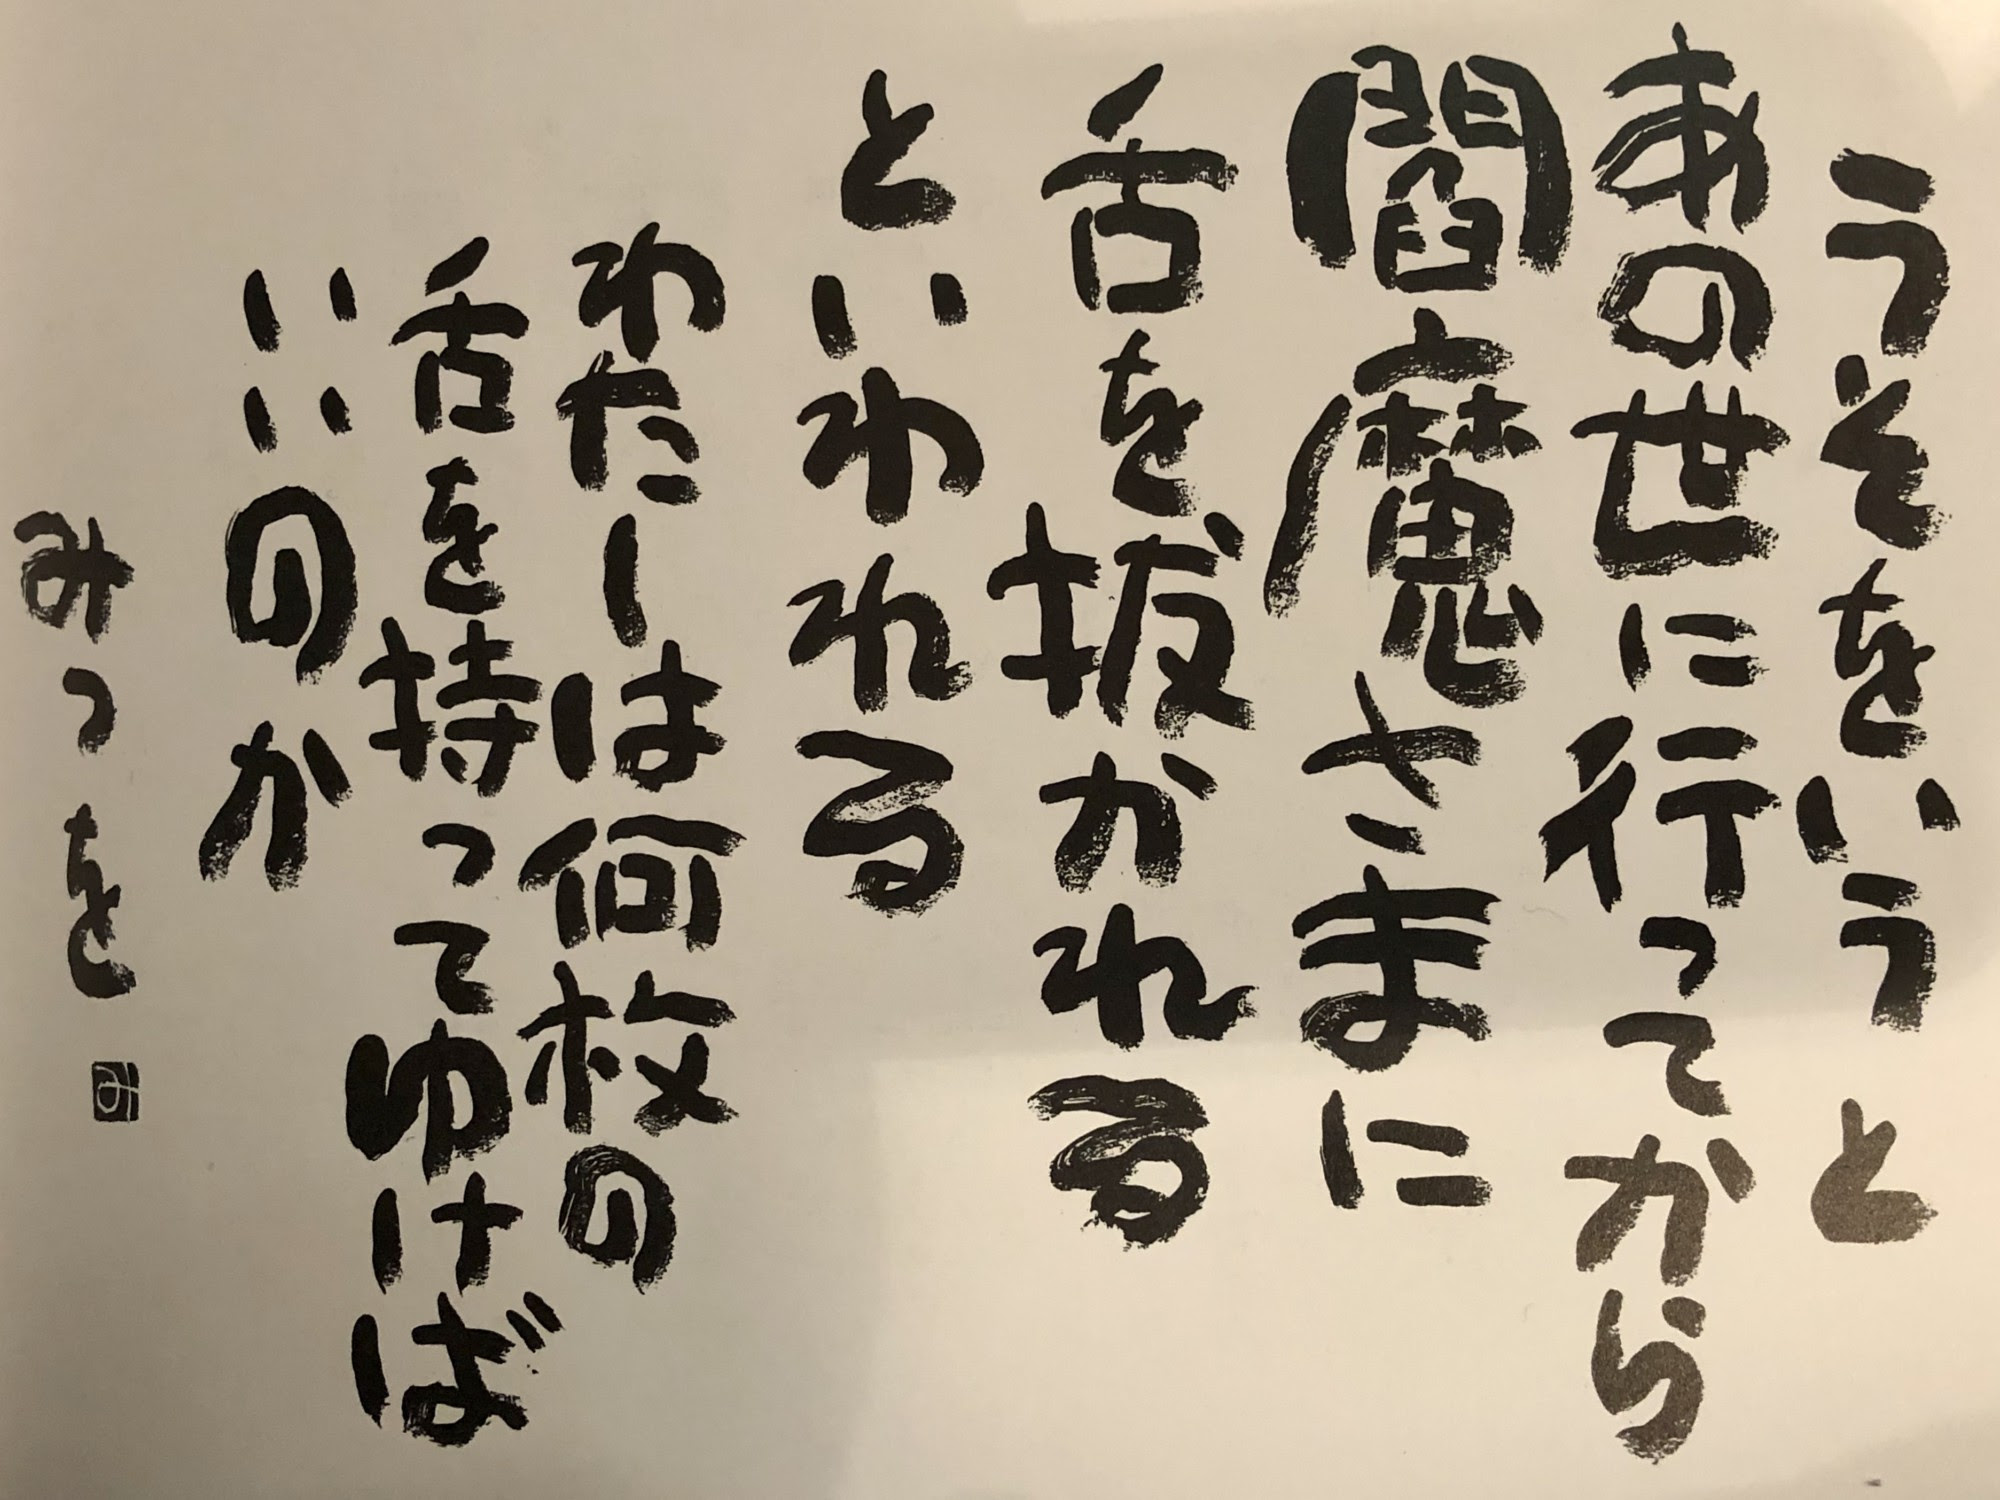 うそをいうと
あの世に行ってから
閻魔さまに
舌を抜かれる
といわれる
わたしは何枚の
舌を持ってゆけば
いいのか
みつを
み